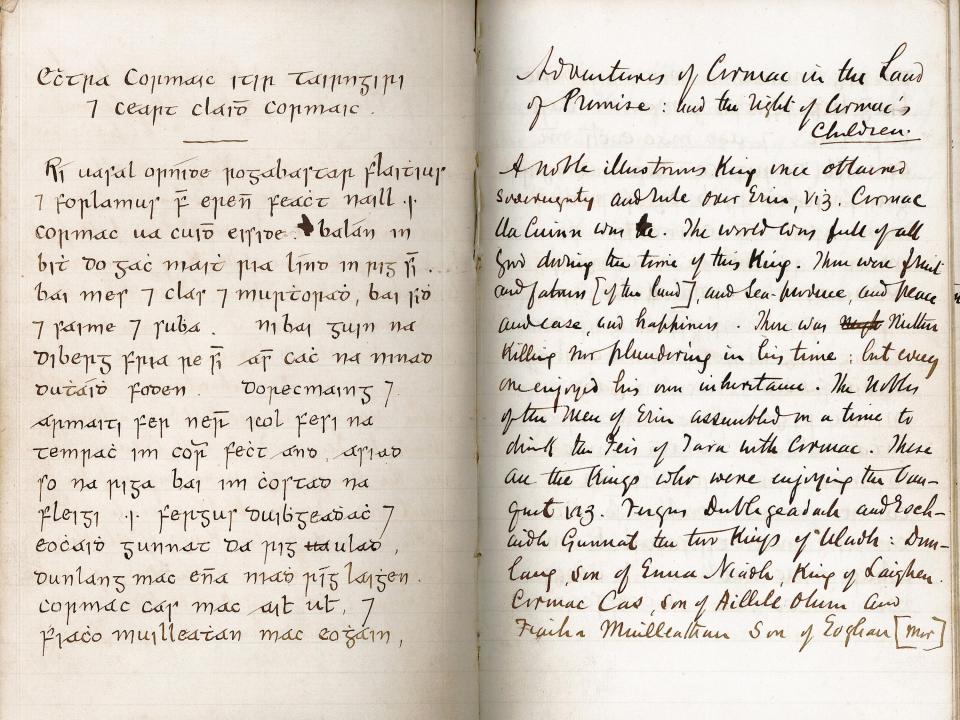 Eċtra Cormaic itir Tairngiri
⁊ ceart claid̄ Cormaic.
Rí uasal oirnide rogabastar flaitius
⁊ forlamus f̄ eren̄ feaċt naill .i.
cormac ua cuīd eiside. balán in
bit do gaċ mait ria lind in rig s̄i.
bai mes ⁊ clas ⁊ murtorad, bai sid
⁊ saime ⁊ suba. ni bai guin na
diberg fria re s̄i ar̄ caċ na ninad
dutaid foden. dorecmaing ⁊
armaiti fer ner̄ icol fesi na
tempaċ im cor̄ feċt and, asiad
so na riga bai im ċostad na
fleigi .i. fergus duibgeadaċ ⁊
eoċaid gunnat da rig ulad,
dunlang mac en̄a niad rīg laigen.
cormac cas mac ail̄ ul̄, ⁊
fiaċo muilleatan mac eogain,
Adventures of Cormac in the Land
of Promise: and the right of Cormac's
Children.
A noble illustrious King once obtained
sovereignty and rule over Erin, viz. Cormac
Ua Cuinn was he. The world was full of all
good during the time of this King. There were fruit
and fatness [of the land], and sea-produce, and peace
and ease, and happiness. There was Neither
Killing nor plundering in his time; but every
one enjoyed his own inheritance. The Nobles
of the Men of Erin assembled on a time to
drink the Feis of Tara with Cormac. These
are the Kings who were enjoying the ban-
quet viz. Fergus Dubhgeadach and Eoch-
aidh Gunnat the two Kings of Uladh: Dun-
lang, son of Enna Niadh, King of Laighen.
Cormac Cas, son of Aillile Olum and
Fiacha Muilleathan Son of Eoghan [mor]